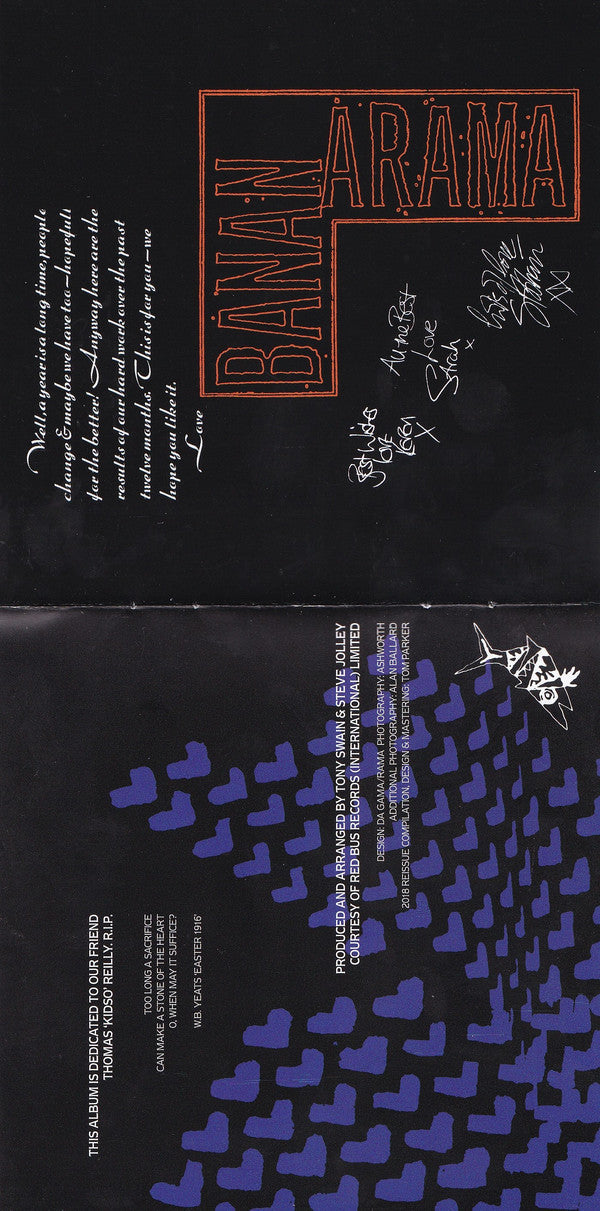 THIS ALBUM IS DEDICATED TO OUR FRIEND
THOMAS 'KIDSO' REILLY. R.I.P.
TOO LONG A SACRIFICE
CAN MAKE A STONE OF THE HEART
O, WHEN MAY IT SUFFICE?
W.B. YEATS 'EASTER 1916'
PRODUCED AND ARRANGED BY TONY SWAIN & STEVE JOLLEY
COURTESY OF RED BUS RECORDS (INTERNATIONAL) LIMITED
DESIGN: DA GAMA/RAMA PHOTOGRAPHY: ASHWORTH
ADDITIONAL PHOTOGRAPHY: ALAN BALLARD
2018 REISSUE COMPILATION, DESIGN & MASTERING: TOM PARKER
Well a year is a long time, people
change & maybe we have too—hopefully
for the better! Anyway here are the
results of our hard work over the past
twelve months. This is for you—we
hope you like it.
Love
BANAN
ARAMA
Best Wishes
Love
Keren
X
All the Best
Love
Sarah
x
Love
Siobhan
xxx